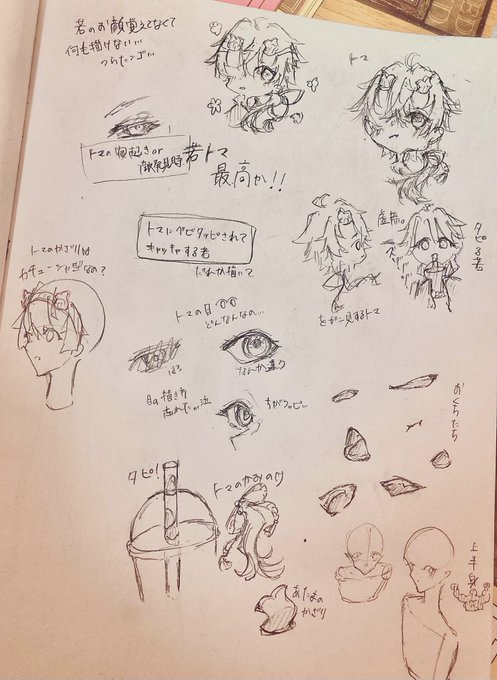 若のお顔覚えてなくて
何も描けない…
つらたにえん
トマ
トマの寝起き or
敵発見時
若トマ
最高か!!
トマにペピタッピされて
キャッキャする若
だれか描いて
虚無。
タピる若
をガン見するトマ
トマのかざりは
カチューシャ型なの?
トマの目👀
どんなんなの…
はっ
なんか違う
目の描き方
忘れた…泣
ちがうッピ…
おくちたち
タピ!
トマのかみのけ
あたまの
かざり
上半身